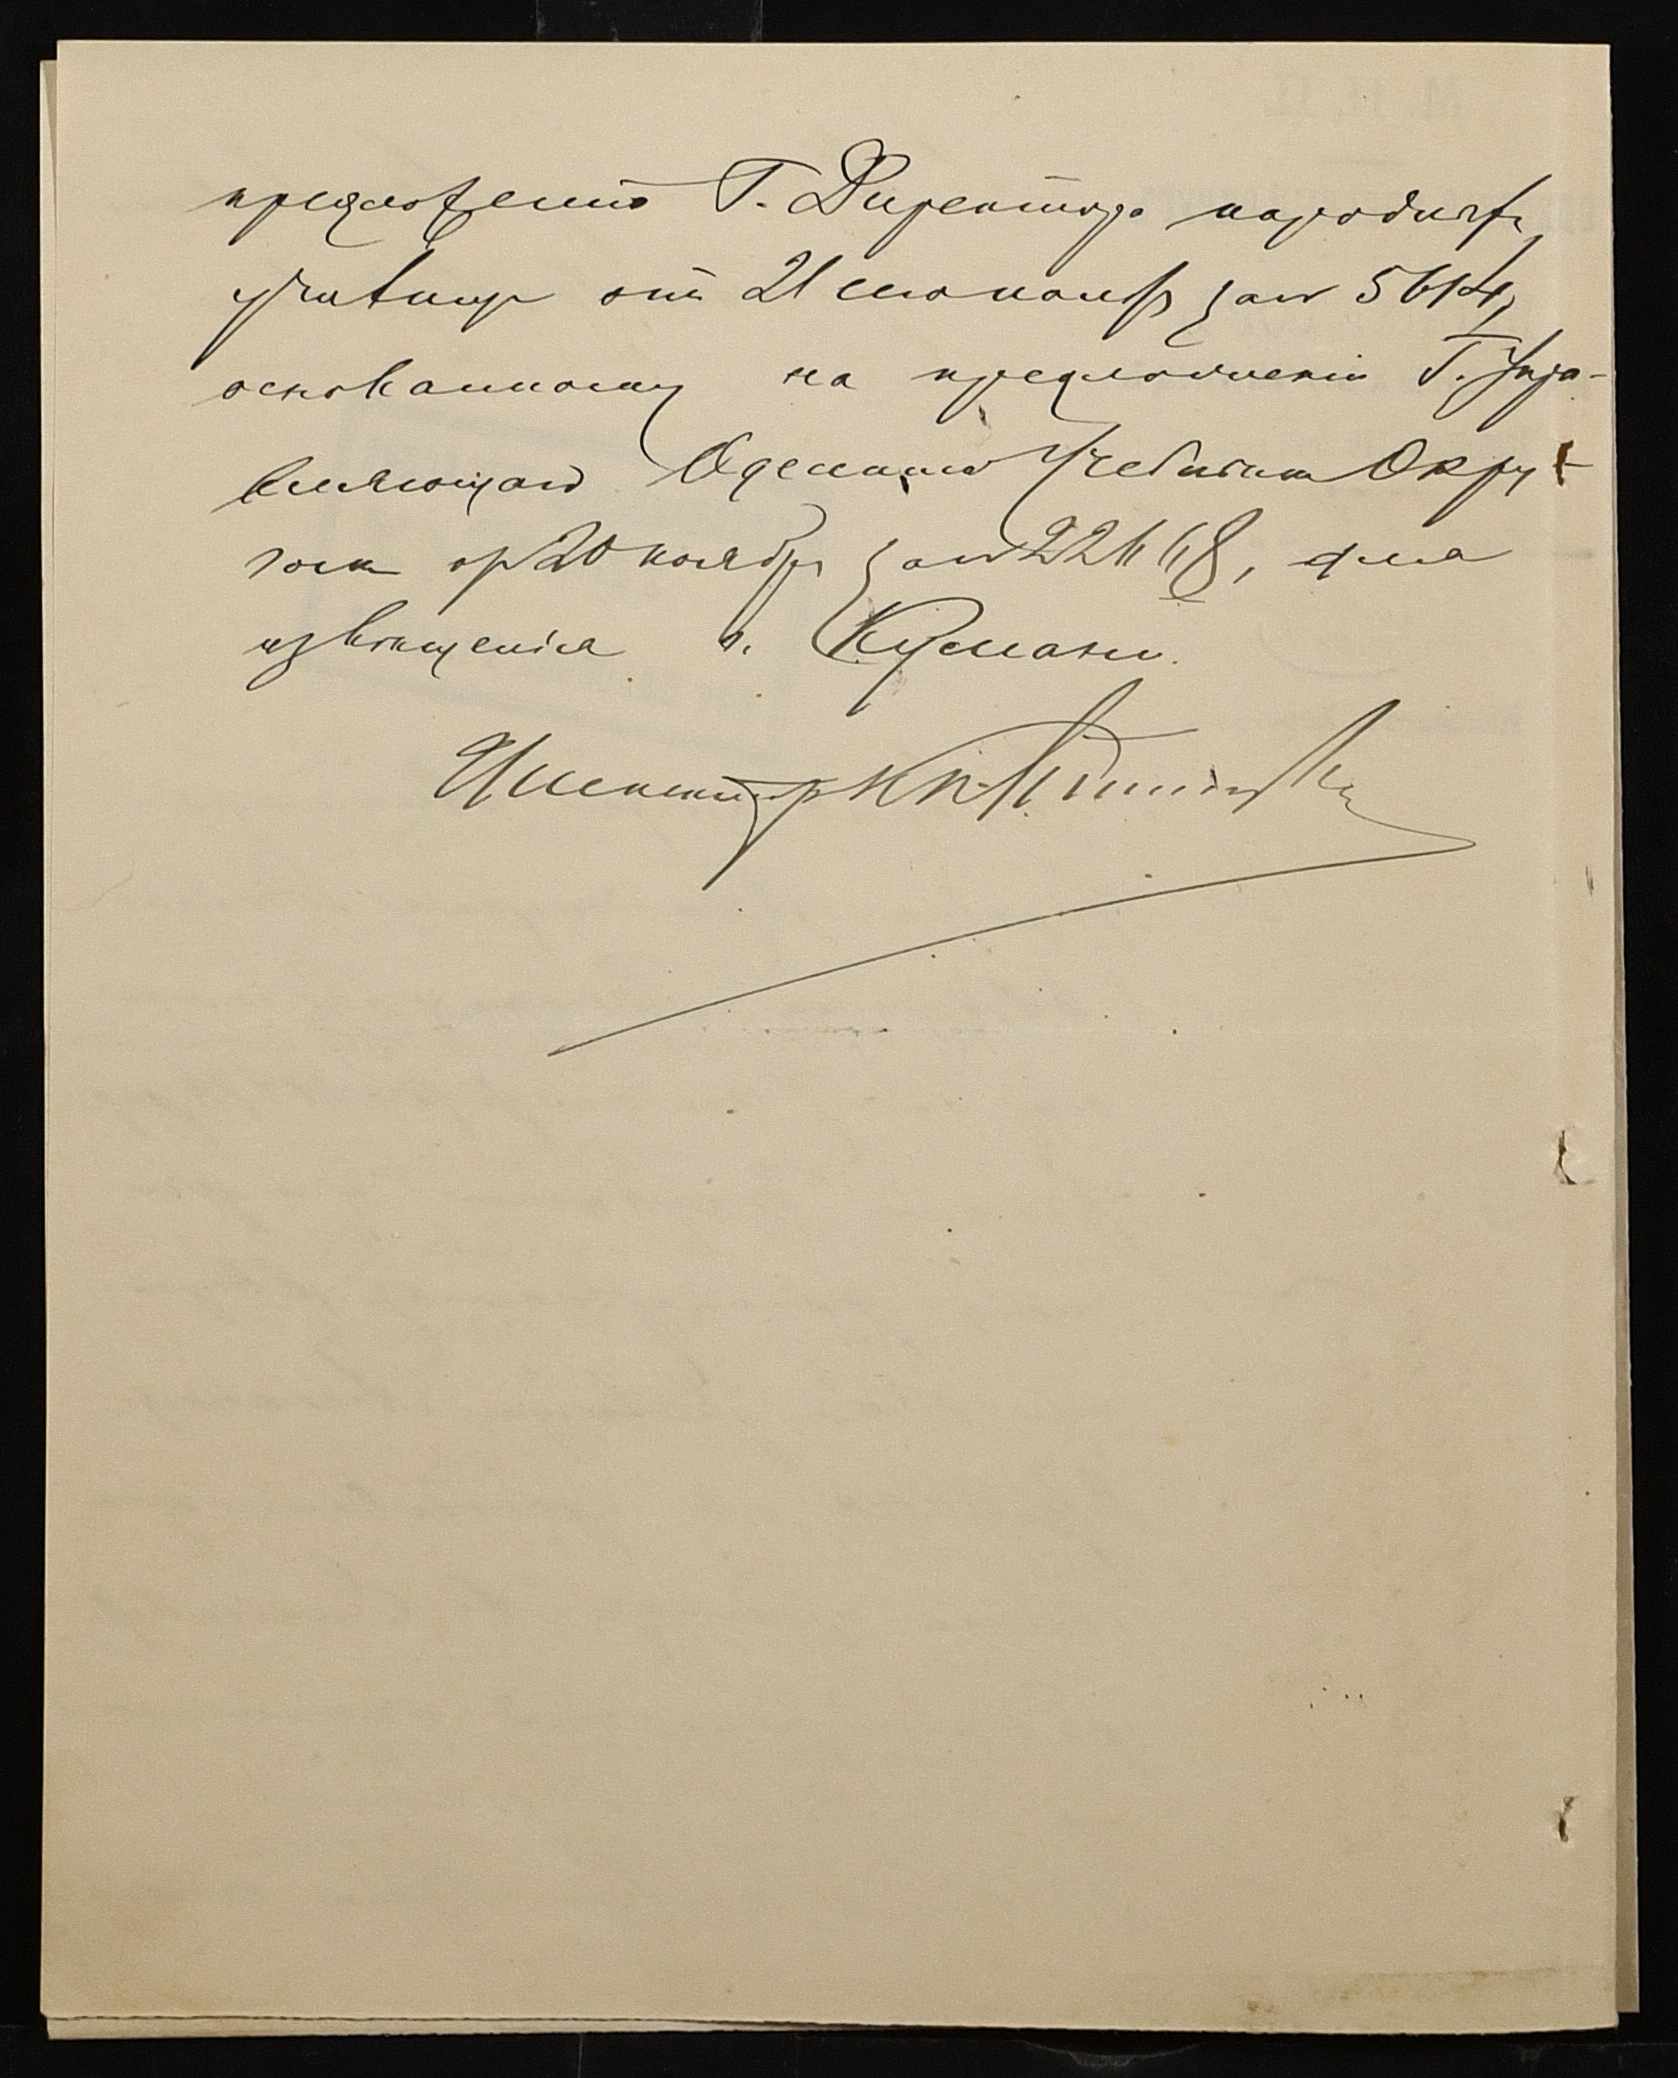 предложенію Г. Директора народныхъ
училищъ отъ 21 сего ноября за № 5614,
основанному на предложеніи Г. Упра-
вляющаго Одесскимъ Учебнымъ Окру-
гомъ отъ 20 ноября за № 22668, для
извѣщенія г. Кусмано.
Инспекторъ